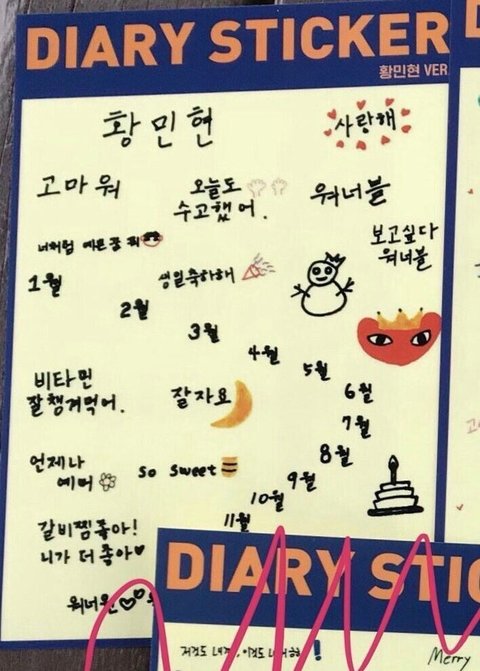 DIARY STICKER
황민현 VER.
황민현
사랑해
고마워
오늘도
수고했어.
워너블
너처럼 예쁜 꿈 꿔
보고싶다
워너블
1월
생일축하해
2월
3월
4월
5월
6월
7월
8월
9월
10월
11월
비타민
잘챙겨먹어.
잘자요
언제나
예뻐
so sweet
갈비찜좋아!
니가 더 좋아
워너원
DIARY STIC
Merry